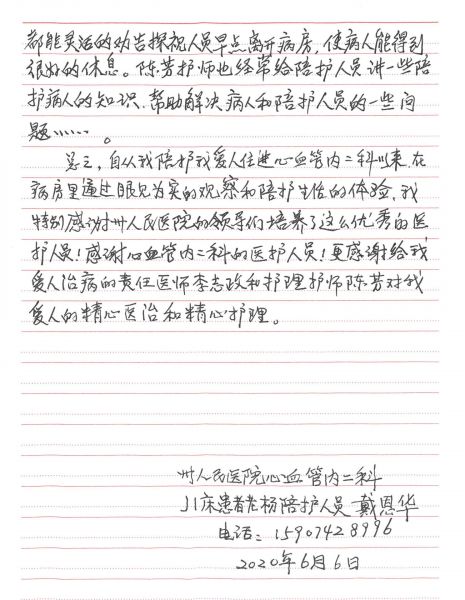 都能灵活的劝告探视人员早点离开病房，使病人能得到
很好的休息。陈芳护师也经常给陪护人员讲一些陪
护病人的知识，帮助解决病人和陪护人员的一些问
题……。
总之，自从我陪护我爱人住进心血管内二科以来，在
病房里通过眼见为实的观察和陪护生活的体验，我
特别感谢州人民医院的领导们培养了这么优秀的医
护人员！感谢心血管内二科的医护人员！更感谢给我
爱人治病的责任医师李志政和护理护师陈芳对我
爱人的精心医治和精心护理。
州人民医院心血管内二科
J1床患者老杨陪护人员 戴恩华
电话：15907428996
2020年6月6日